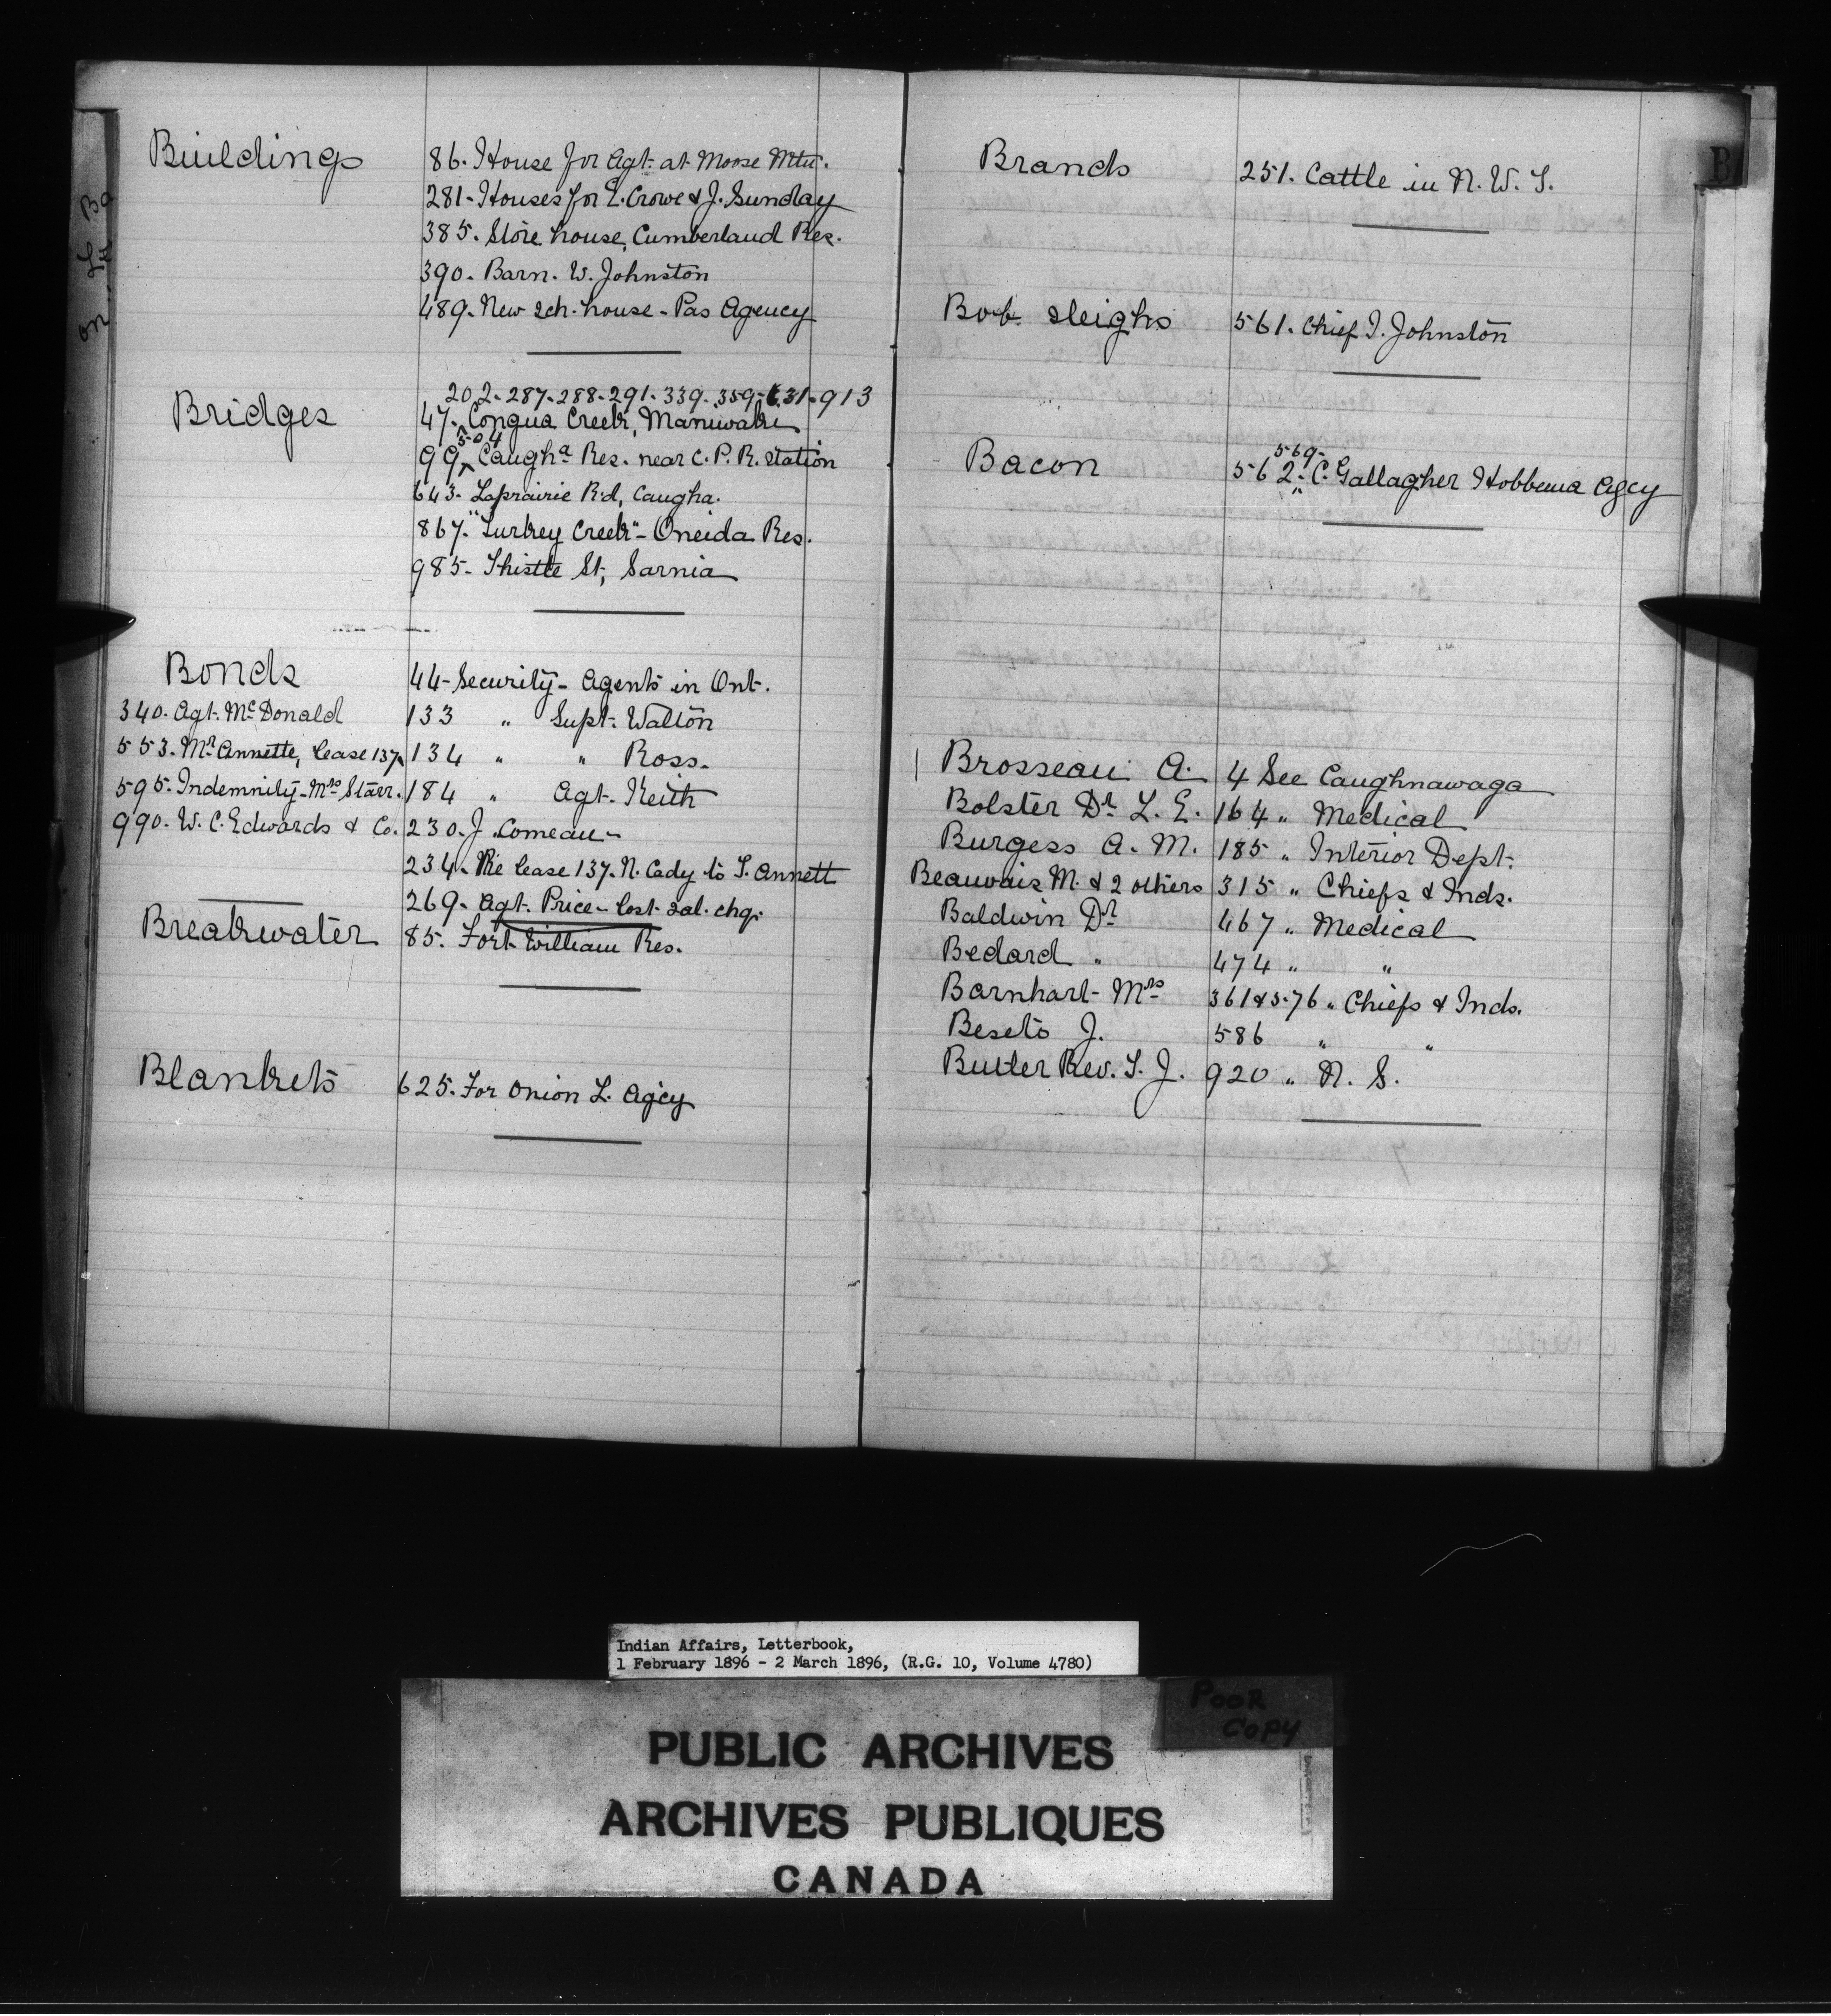 Buildings
86. House for Agt. at Moose Mtn.
281. Houses for E. Crowe & J. Sunday
385. Store house, Cumberland Res.
390. Barn. W. Johnston
489. New sch. house - Pas Agency
Bridges
202-287-288-291-339-359-631-913
47. Congua Creek, Maniwaki
504
99. Caugha Res. near C. P. R. station
643. Laprairie Rd, Caugha.
867. "Turkey Creek" - Oneida Res.
985. Thistle St, Sarnia
Bonds
44 - Security - Agents in Ont.
340. Agt. McDonald
133 " Supt. Walton
553. Mr Annette, lease 137
134 " " Ross.
595. Indemnity - Mrs Starr.
184 " Agt. Keith
990. W. C. Edwards & Co.
230. J. Comeau -
234. Re lease 137. N. Cady to T. Annett
269. Agt. Price - lost sal. chq.
Breakwater
85. Fort William Res.
Blankets
625. For Onion L. Agcy
B
Brands
251. Cattle in N. W. T.
Bob sleighs
561. Chief I. Johnston
Bacon
569-
562. C. Gallagher Hobbema Agcy
Brosseau A. 4 See Caughnawaga
Bolster Dr L. E. 164 " Medical
Burgess A. M. 185 " Interior Dept.
Beauvais M. & 2 others 315 " Chiefs & Inds.
Baldwin Dr 467 " Medical
Bedard " 474 " "
Barnhart Mrs 361 & 576 " Chiefs & Inds.
Beseto J. 586 " "
Butler Rev. T. J. 920 " N. S.
Indian Affairs, Letterbook,
1 February 1896 - 2 March 1896, (R.G. 10, Volume 4780)
POOR
COPY
PUBLIC ARCHIVES
ARCHIVES PUBLIQUES
CANADA